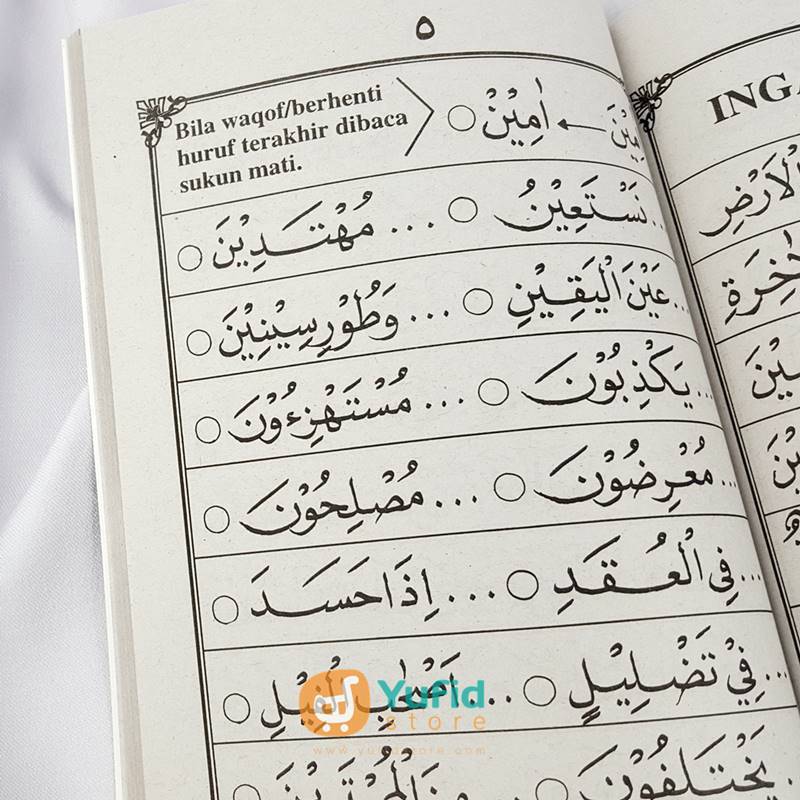 ٥
Bila waqof/berhenti
huruf terakhir dibaca
sukun mati.
اٰمِيْنْ ○
...نَسْتَعِيْنُ ○ ... مُهْتَدِيْنَ ○
...عَيْنَ الْيَقِيْنِ ○ ... وَطُوْرِسِيْنِيْنَ ○
...يَكْذِبُوْنَ ○ ... مُسْتَهْزِءُوْنَ ○
...مُعْرِضُوْنَ ○ ... مُصْلِحُوْنَ ○
...فِي الْعُقَدِ ○ ... اِذَاحَسَدَ ○
...فِيْ تَضْلِيْلٍ ○ ... الْفِيْلِ ○
يَخْتَلِفُوْنَ ○
ING
الْاَرْضِ
Yufid
store